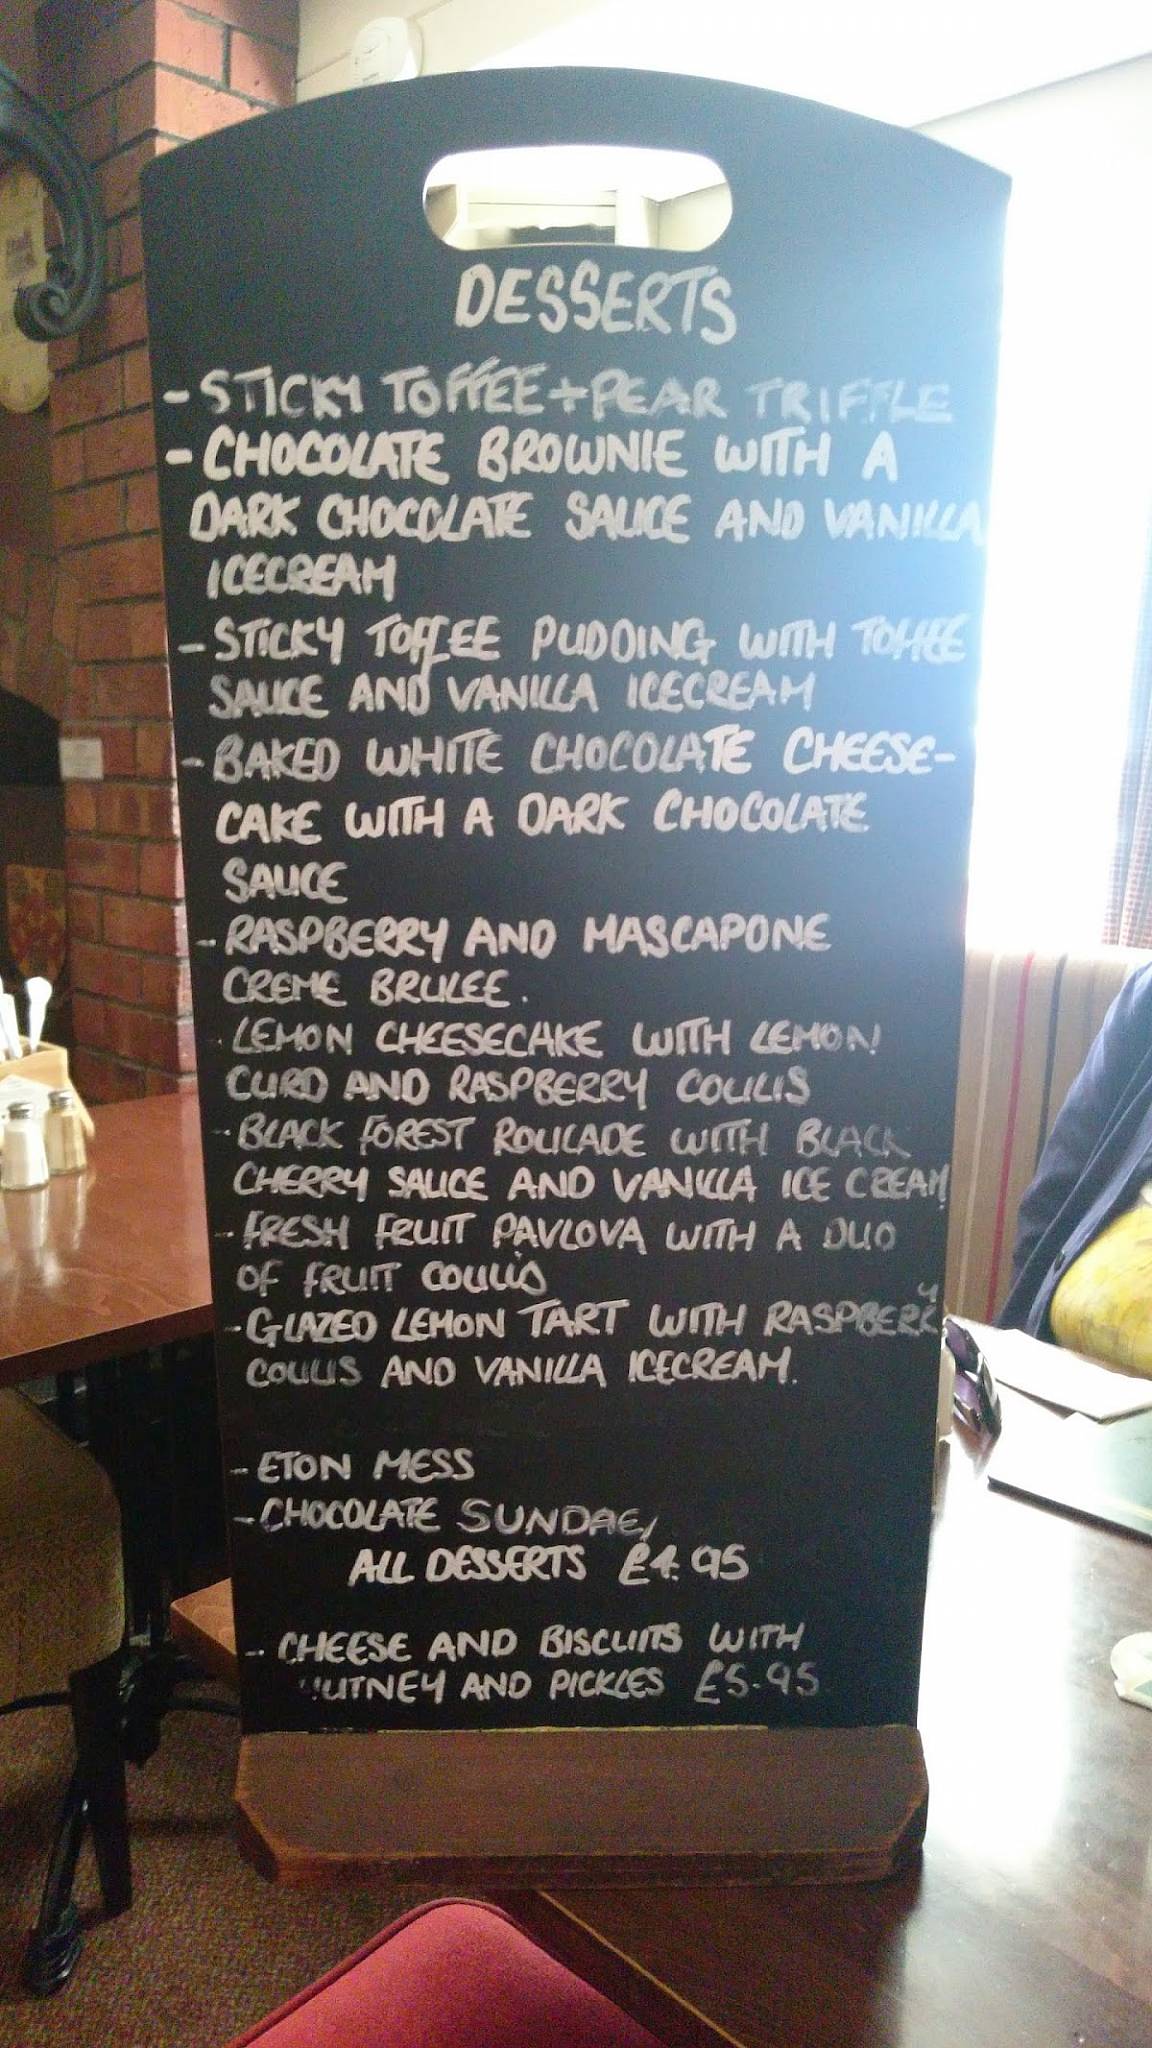 DESSERTS
- STICKY TOFFEE + PEAR TRIFFLE
- CHOCOLATE BROWNIE WITH A
DARK CHOCOLATE SAUCE AND VANILLA
ICECREAM
- STICKY TOFFEE PUDDING WITH TOFFEE
SAUCE AND VANILLA ICECREAM
- BAKED WHITE CHOCOLATE CHEESE-
CAKE WITH A DARK CHOCOLATE
SAUCE
- RASPBERRY AND MASCAPONE
CREME BRULEE.
- LEMON CHEESECAKE WITH LEMON
CURD AND RASPBERRY COULIS
- BLACK FOREST ROULADE WITH BLACK
CHERRY SAUCE AND VANILLA ICE CREAM
- FRESH FRUIT PAVLOVA WITH A DUO
OF FRUIT COULIS
- GLAZED LEMON TART WITH RASPBERRY
COULIS AND VANILLA ICECREAM.
- ETON MESS
- CHOCOLATE SUNDAE,
ALL DESSERTS £4.95
- CHEESE AND BISCUITS WITH
HUTNEY AND PICKLES £5.95